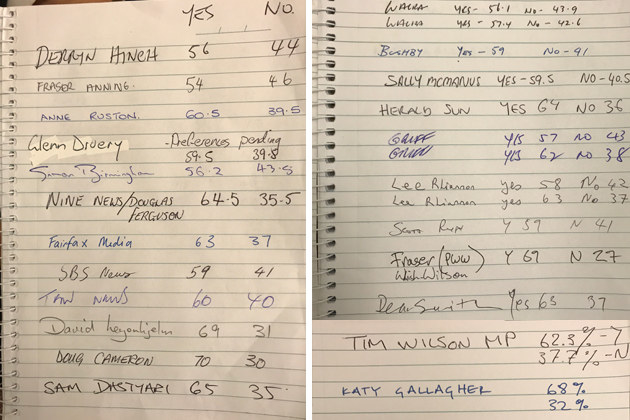 YES NO.
DERRYN HINCH 56 44
FRASER ANNING. 54 46
ANNE RUSTON. 60.5 39.5
Glenn Druery -Preferences pending
59.5 39.5
Simon Birmingham 56.2 43.5
NINE NEWS/DOUGLAS 64.5 35.5
FERGUSON
Fairfax Media 63 37
SBS News 59 41
NEWS 60 40
David Leyonhjelm 69 31
DOUG CAMERON 70 30
SAM DASTYARI 65 35.
WACKA YES - 56.1 NO - 43.9
WACKA YES - 57.4 NO - 42.6
BUSHBY Yes - 59 NO - 41
SALLY MCMANUS YES - 59.5 NO - 40.5
HERALD SUN YES 64 NO 36
GRIFF YES 57 NO 43
GRIFF YES 62 NO 38
Lee Rhiannon yes 58 No 42
Lee Rhiannon yes 63 No 37
Scott Ryan Y 59 N 41
Fraser (PWW) Y 69 N 27
Wilson
Dean Smith Yes 63 37
TIM WILSON MP 62.3% - Y
37.7% - N
KATY GALLAGHER 68%
32%